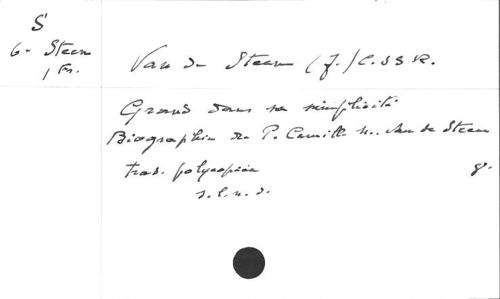 S
6- Steen
1 Ex.
Van de Steen (J.) C.SS R.
Grand dans sa simplicité
Biographie du P. Camille Van de Steen
trad. polycopiée
s.l.n.d.